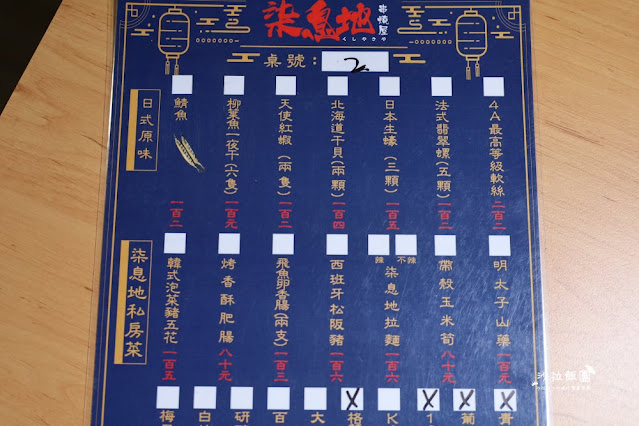 柒息地
串燒屋
くしやきや
桌號：2
日式原味
4A最高等級軟絲 二百二
法式翡翠螺（五顆） 一百二
日本生蠔（三顆） 一百五
北海道干貝（兩顆） 一百四
天使紅蝦（兩隻） 一百二
柳葉魚一夜干（六隻） 一百元
鯖魚 一百二
柒息地私房菜
明太子山藥 一百元
帶殼玉米筍 八十元
不辣
辣
柒息地拉麵 一百六
西班牙松阪豬 一百六
飛魚卵香腸（兩支） 一百三
烤香酥肥腸 八十元
韓式泡菜豬五花 一百五
貴
葡
1
K
格
大
百
研
白
梅